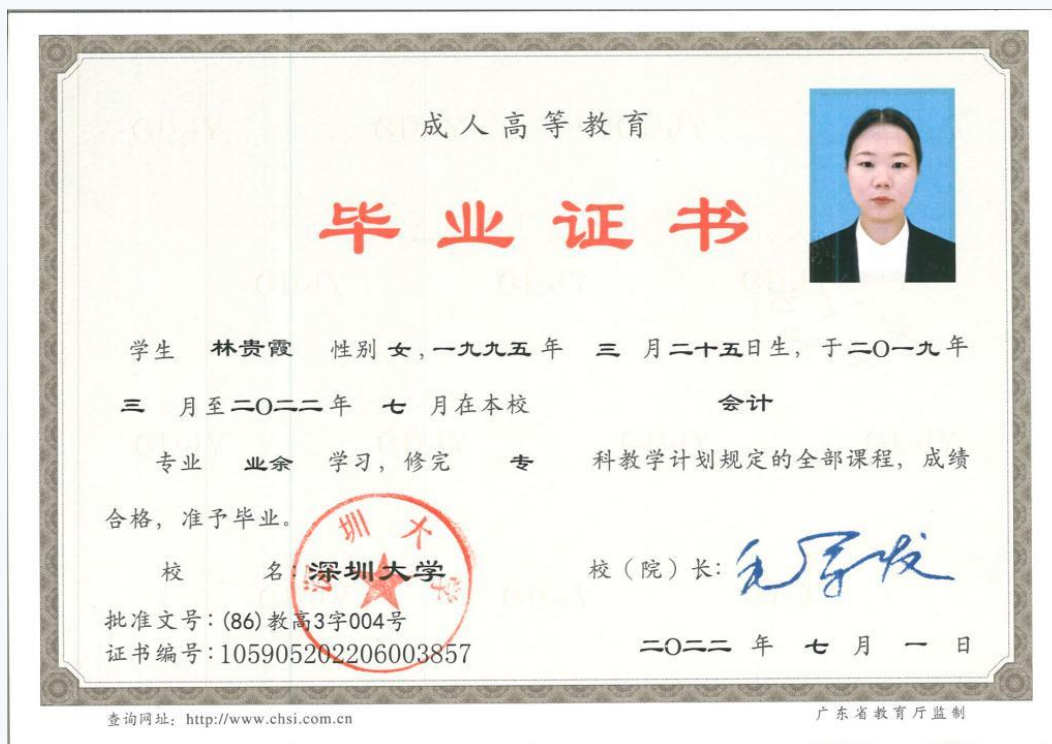 成人高等教育
毕业证书
学生 林贵霞 性别 女，一九九五年 三 月二十五日生，于二〇一九年
三 月至二〇二二年 七 月在本校 会计
专业 业余 学习，修完 专 科教学计划规定的全部课程，成绩
合格，准予毕业。
深圳大学
校 名：深圳大学 校（院）长：
批准文号：(86)教高3字004号
证书编号：105905202206003857 二〇二二 年 七 月 一 日
查询网址：http://www.chsi.com.cn 广东省教育厅监制